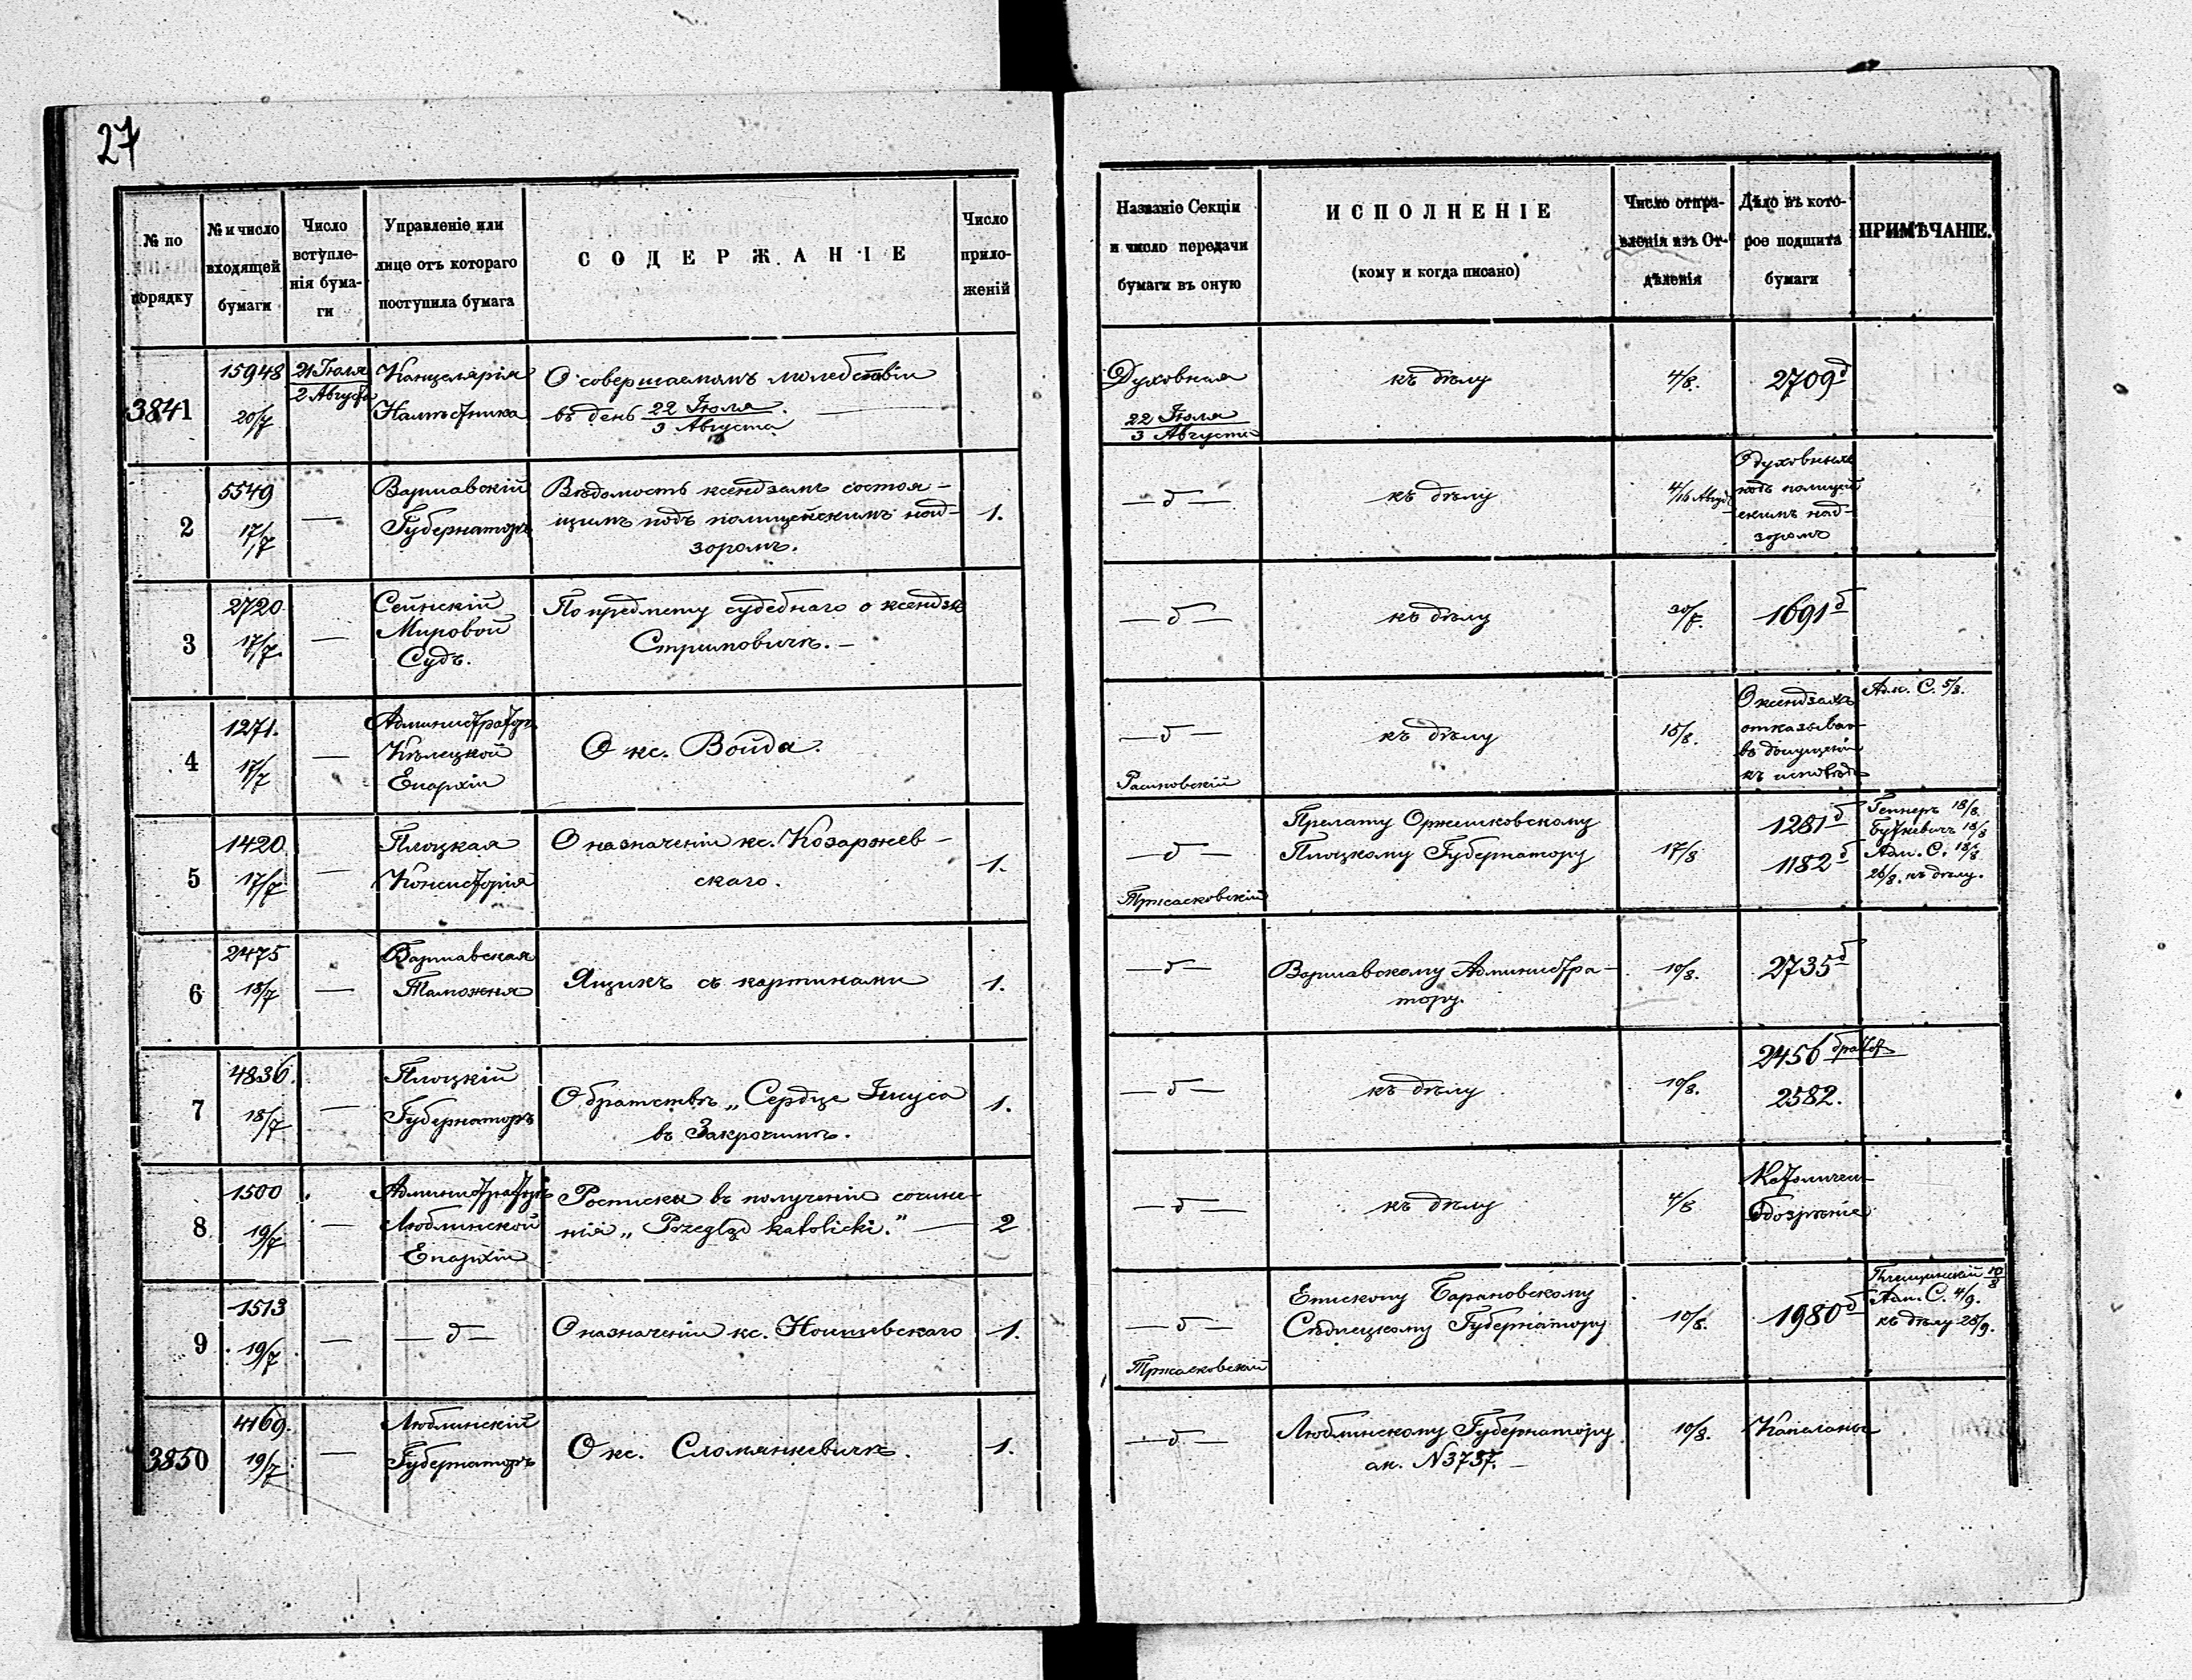 27
№ по порядку
№ и число входящей бумаги
Число вступле-нія бума-ги
Управленіе или лице отъ котораго поступила бумага
СОДЕРЖАНІЕ
Число прило-женій
Названіе Секціи и число передачи бумаги въ оную
ИСПОЛНЕНІЕ
(кому и когда писано)
Число отпра-вленія изъ От-дѣленія
Дѣло въ кото-рое подшита бумаги
ПРИМѢЧАНІЕ.
3841
15948
20/7
21 Іюля
2 Августа
Канцелярія
Намѣстника
О совершаемомъ молебствіи
въ день 22 Іюля
3 Августа
Духовная
22 Іюля
3 Августа
къ дѣлу
4/8.
2709 д
2
5549
17/7
—
Варшавскій
Губернаторъ
Вѣдомость ксендзамъ состоя-
щимъ подъ полицейскимъ над-
зоромъ.
1.
— д —
къ дѣлу
4/16 Авгус
О духовныхъ
подъ полицей
скимъ над-
зоромъ
3
2720
17/7.
—
Сейнскій
Мировой
Судъ.
По предмету судебнаго о ксендзѣ
Стримовичъ. —
— д —
къ дѣлу
30/7.
1691 д
4
1271.
17/7
—
Администраторъ
Кѣлецкой
Епархіи
О кс. Войда.
— д —
къ дѣлу
15/8.
О ксендзахъ
отказыва-
въ допущеніи
къ исповѣди
Адм. С. 5/8.
5
1420
17/7
—
Плоцкая
Консисторія
О назначеніи кс. Козаржев-
скаго.
1.
— д —
Тржасковскій
Прелату Оржешковскому
Плоцкому Губернатору
17/8
1281 д
1182 д
18/8.
Буткевичъ 18/8
Адм. С. 18/8
26/8. къ дѣлу.
6
2475
18/7
—
Варшавская
Таможня
Ящикъ съ картинами
1.
— д —
Варшавскому Администра-
тору.
10/8.
2735 д
7
4836.
18/7
—
Плоцкій
Губернаторъ
О братствѣ „Сердце Іисуса
въ Закрочимъ.
1.
— д —
къ дѣлу
10/8.
2456
2582.
8
1500
19/7
—
Администраторъ
Люблинской
Епархіи
Росписки въ полученіи сочине-
нія „Przegląd katolicki.“ —
2
— д —
къ дѣлу
4/8
Католичес-
Обозрѣніе
9
1513
19/7
—
— д —
О назначеніи кс. Ноишевскаго
1.
— д —
Тржасковскій
Епископу Барановскому
Сѣдлецкому Губернатору
10/8.
1980 д
10/8
Адм. С. 4/9.
къ дѣлу 28/9.
3850
4169.
19/7
—
Люблинскій
Губернаторъ
О кс. Сломянкевичъ.
1.
— д —
Люблинскому Губернатору
ан. N 3737. —
10/8.
Капеланы